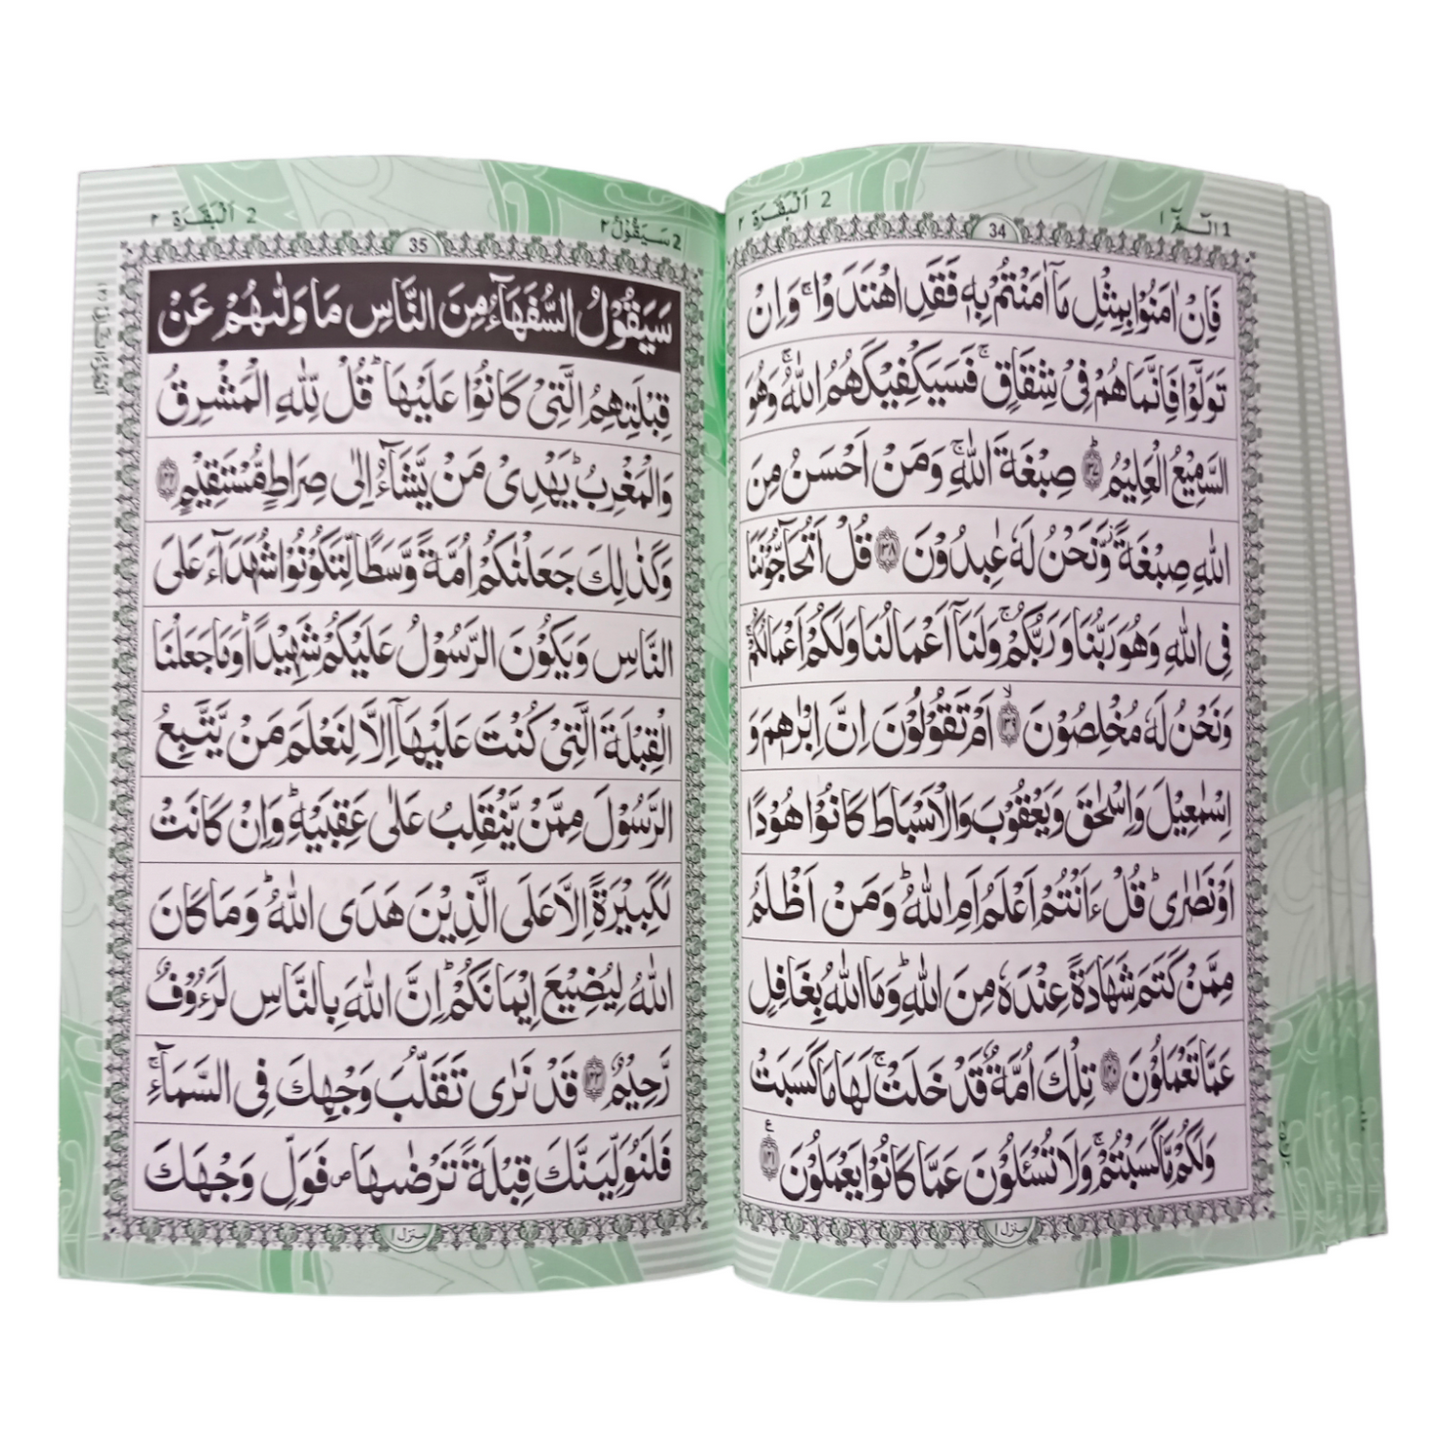 1 الٓمّٓ ١
34
2 اَلْبَقَرَة ٢
فَاِنْ اٰمَنُوْا بِمِثْلِ مَاۤ اٰمَنْتُمْ بِهٖ فَقَدِ اهْتَدَوْا ۚ وَ اِنْ
تَوَلَّوْا فَاِنَّمَا هُمْ فِیْ شِقَاقٍ ۚ فَسَیَكْفِیْكَهُمُ اللّٰهُ ۚ وَهُوَ
السَّمِیْعُ الْعَلِیْمُ ؕ ۝۱۳۷ صِبْغَةَ اللّٰهِ ۚ وَمَنْ اَحْسَنُ مِنَ
اللّٰهِ صِبْغَةً ؗ وَّنَحْنُ لَهٗ عٰبِدُوْنَ ۝۱۳۸ قُلْ اَتُحَآجُّوْنَنَا
فِی اللّٰهِ وَهُوَ رَبُّنَا وَرَبُّكُمْ ۚ وَلَنَاۤ اَعْمَالُنَا وَلَكُمْ اَعْمَالُكُمْ ۚ
وَنَحْنُ لَهٗ مُخْلِصُوْنَ ۙ ۝۱۳۹ اَمْ تَقُوْلُوْنَ اِنَّ اِبْرٰهٖمَ وَ
اِسْمٰعِیْلَ وَاِسْحٰقَ وَیَعْقُوْبَ وَالْاَسْبَاطَ كَانُوْا هُوْدًا
اَوْ نَصٰرٰی ؕ قُلْ ءَاَنْتُمْ اَعْلَمُ اَمِ اللّٰهُ ؕ وَمَنْ اَظْلَمُ
مِمَّنْ كَتَمَ شَهَادَةً عِنْدَهٗ مِنَ اللّٰهِ ؕ وَمَا اللّٰهُ بِغَافِلٍ
عَمَّا تَعْمَلُوْنَ ۝۱۴۰ تِلْكَ اُمَّةٌ قَدْ خَلَتْ ۚ لَهَا مَا كَسَبَتْ
وَلَكُمْ مَّا كَسَبْتُمْ ۚ وَلَا تُسْـَٔلُوْنَ عَمَّا كَانُوْا یَعْمَلُوْنَ ۝۱۴۱ ع
منزل ۱
2 سَیَقُوْلُ ٢
35
2 اَلْبَقَرَة ٢
سَیَقُوْلُ السُّفَهَآءُ مِنَ النَّاسِ مَا وَلّٰىهُمْ عَنْ
قِبْلَتِهِمُ الَّتِیْ كَانُوْا عَلَیْهَا ؕ قُلْ لِّلّٰهِ الْمَشْرِقُ
وَالْمَغْرِبُ ؕ یَهْدِیْ مَنْ یَّشَآءُ اِلٰی صِرَاطٍ مُّسْتَقِیْمٍ ۝۱۴۲
وَكَذٰلِكَ جَعَلْنٰكُمْ اُمَّةً وَّسَطًا لِّتَكُوْنُوْا شُهَدَآءَ عَلَی
النَّاسِ وَیَكُوْنَ الرَّسُوْلُ عَلَیْكُمْ شَهِیْدًا ؕ وَمَا جَعَلْنَا
الْقِبْلَةَ الَّتِیْ كُنْتَ عَلَیْهَاۤ اِلَّا لِنَعْلَمَ مَنْ یَّتَّبِعُ
الرَّسُوْلَ مِمَّنْ یَّنْقَلِبُ عَلٰی عَقِبَیْهِ ؕ وَاِنْ كَانَتْ
لَكَبِیْرَةً اِلَّا عَلَی الَّذِیْنَ هَدَی اللّٰهُ ؕ وَمَا كَانَ
اللّٰهُ لِیُضِیْعَ اِیْمَانَكُمْ ؕ اِنَّ اللّٰهَ بِالنَّاسِ لَرَءُوْفٌ
رَّحِیْمٌ ۝۱۴۳ قَدْ نَرٰی تَقَلُّبَ وَجْهِكَ فِی السَّمَآءِ ۚ
فَلَنُوَلِّیَنَّكَ قِبْلَةً تَرْضٰىهَا ۪ فَوَلِّ وَجْهَكَ
منزل ۱